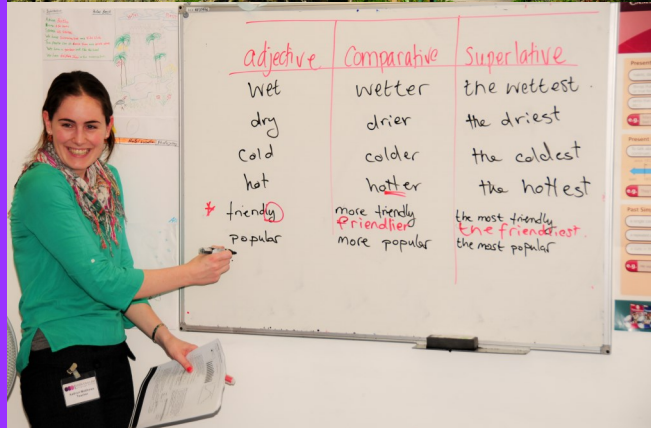 adjective Comparative Superlative
wet wetter the wettest.
dry drier the driest
cold colder the coldest
hot hotter the hottest
* friendly more friendly the most friendly
friendlier the friendliest.
popular more popular the most popular